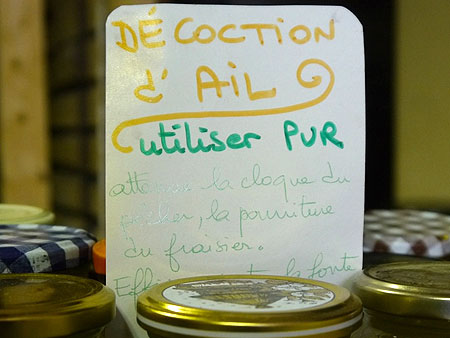 DÉCOCTION
d'AIL
utiliser PUR
la cloque du
pêcher, la pourriture
du fraisier.
la fonte